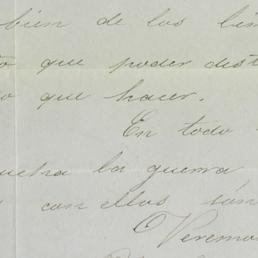 bien de los lim
que poder dest
o que hacer.
En todo
la guerra
con ellos són
Veremo